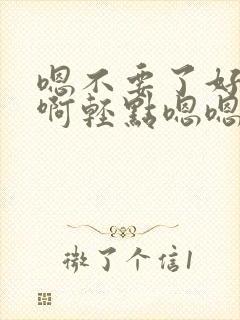 嗯不要了好
啊轻點嗯嗯
微了个信1